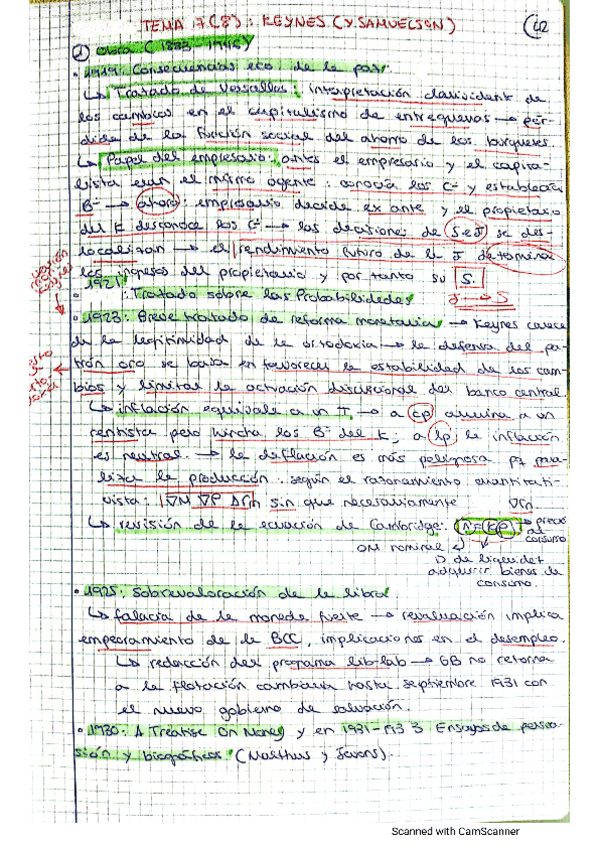 TEMA 17 (8): KEYNES (Y SAMUELSON)
42
① Obra (1883 - 1946)
• 1919: Consecuencias eco de la paz
↳ Tratado de Versalles: interpretación clarividente de
los cambios en el capitalismo de entreguerras → pér-
dida de la función social del ahorro de los burgueses.
↳ Papel del empresario: antes el empresario y el capita-
lista eran el mismo agente: conocía los C⁼ y establecía
B⁼ → ahora: empresario decide ex ante y el propietario
del K desconoce los C⁼ → las decisiones de S e I se des-
localizan → el rendimiento futuro de la I determina
los ingresos del propietario y por tanto su S.
• 1921: Tratado sobre las Probabilidades
I → S
• 1923: Breve tratado de reforma monetaria → Keynes carece
de la legitimidad de la ortodoxia → la defensa del pa-
trón oro se basa en favorecer la estabilidad de los cam-
bios y limitar la actuación discrecional del banco central.
↳ inflación equivale a un T → a cp arruina a un
rentista pero hincha los B⁼ del K, a lp la inflación
es neutral. → la deflación es más peligrosa pq para-
liza la producción. según el razonamiento cuantitati-
vista: ∇M ∇P sin que necesariamente
↳ revisión de la ecuación de Cambridge:
→ precio al consumo
OM nominal
D de liquidez
adquirir bienes de
consumo.
• 1925: Sobrevaloración de la libra
↳ falacia de la moneda fuerte → revaluación implica
empeoramiento de la BCC, implicaciones en el desempleo.
↳ redacción del programa lib-lab → GB no retorna
a la flotación cambiaria hasta septiembre 1931 con
el nuevo gobierno de salvación.
• 1930: A Treatise On Money y en 1931-1933 Ensayos de persua-
sión y biográficos (Malthus y Jevons).
Scanned with CamScanner